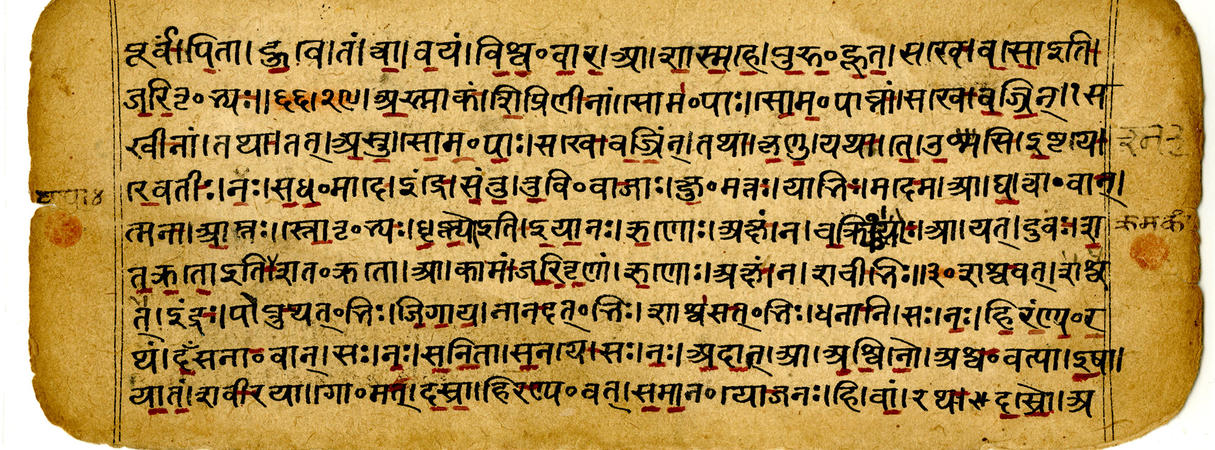 पूर्वं।पिता।हुवे।तं।त्वा।वयं।विश्व०वार।आ।शास्महे।पुरु०हूत।सखे।वसो इति
जरितृ०भ्यः॥६६।२९।अस्माकं।शिप्रिणीनां।सोम०पाः।सोम०पाव्नां।सखे।वज्रिन्।स
खीनां।तथा।तत्।अस्तु।सोम०पाः।सखे।वज्रिन्।तथा।कृणु।यथा।ते।उश्मसि।इष्टये
रेवतीः।नः।सध०मादे।इंद्रे।संतु।तुवि०वाजाः।क्षु०मंतः।याभिः।मदेम।आ।घ।त्वा०वान्।
त्मना।आप्तः।स्तोतृ०भ्यः।धृष्णो इति।इयानः।ऋणोः।अक्षं।न।चक्र्योः।आ।यत्।दुवः।श
तक्रतो इति शत०क्रतो।आ।कामं।जरितॄणां।ऋणोः।अक्षं।न।शचीभिः॥३० शश्वत्।शश्व
त्।इंद्रः।पोप्रुथत्०भिः।जिगाय।नानदत्०भिः।शाश्वसत्०भिः।धनानि।सः।नः।हिरण्य०र
थं।दंसना०वान्।सः।नः।सनिता।सनये।सः।नः।अदात्।आ।अश्विनौ।अश्व०वत्या।इषा।
यातं।शवीरया।गो०मत्।दस्रा।हिरण्य०वत्।समान०योजनः।हि।वां।रथः।दस्रौ।अ